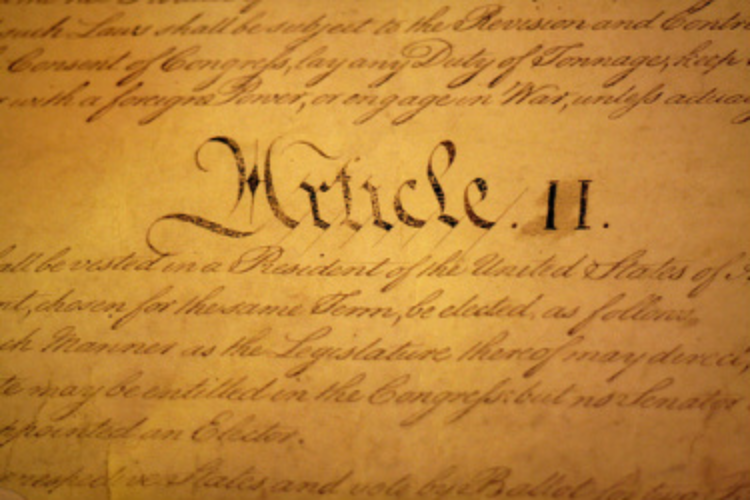 such Laws shall be subject to the Revision and Contr
Consent of Congress, lay any Duty of Tonnage, keep
with a foreign Power, or engage in War, unless actua
Article. II.
all be vested in a President of the United States of A
nt, chosen for the same Term, be elected, as follows,
ch Manner as the Legislature thereof may direct,
te may be entitled in the Congress: but no Senator
ppointed an Elector.
respective States, and vote by Ballot